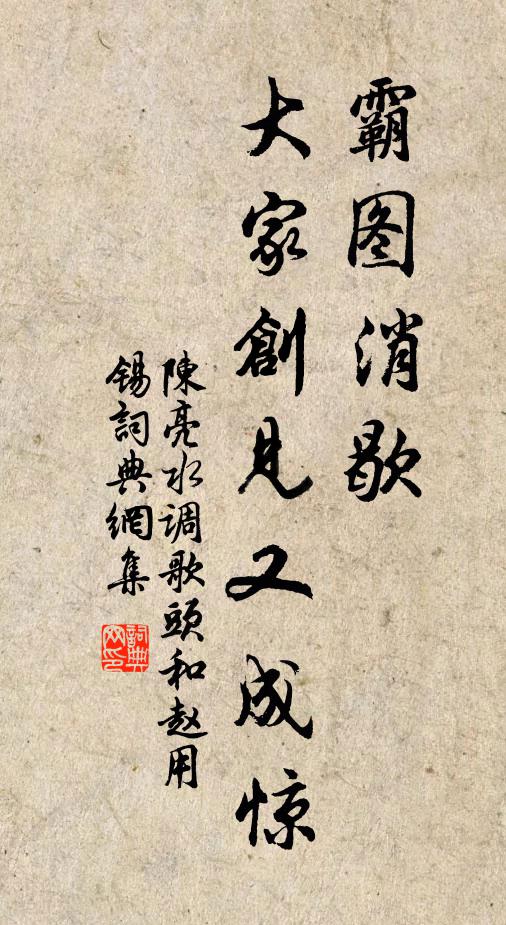 霸图消歇
大家創見又成惊
陳亮水调歌頭和赵用
锡詞典網集
詞典网印